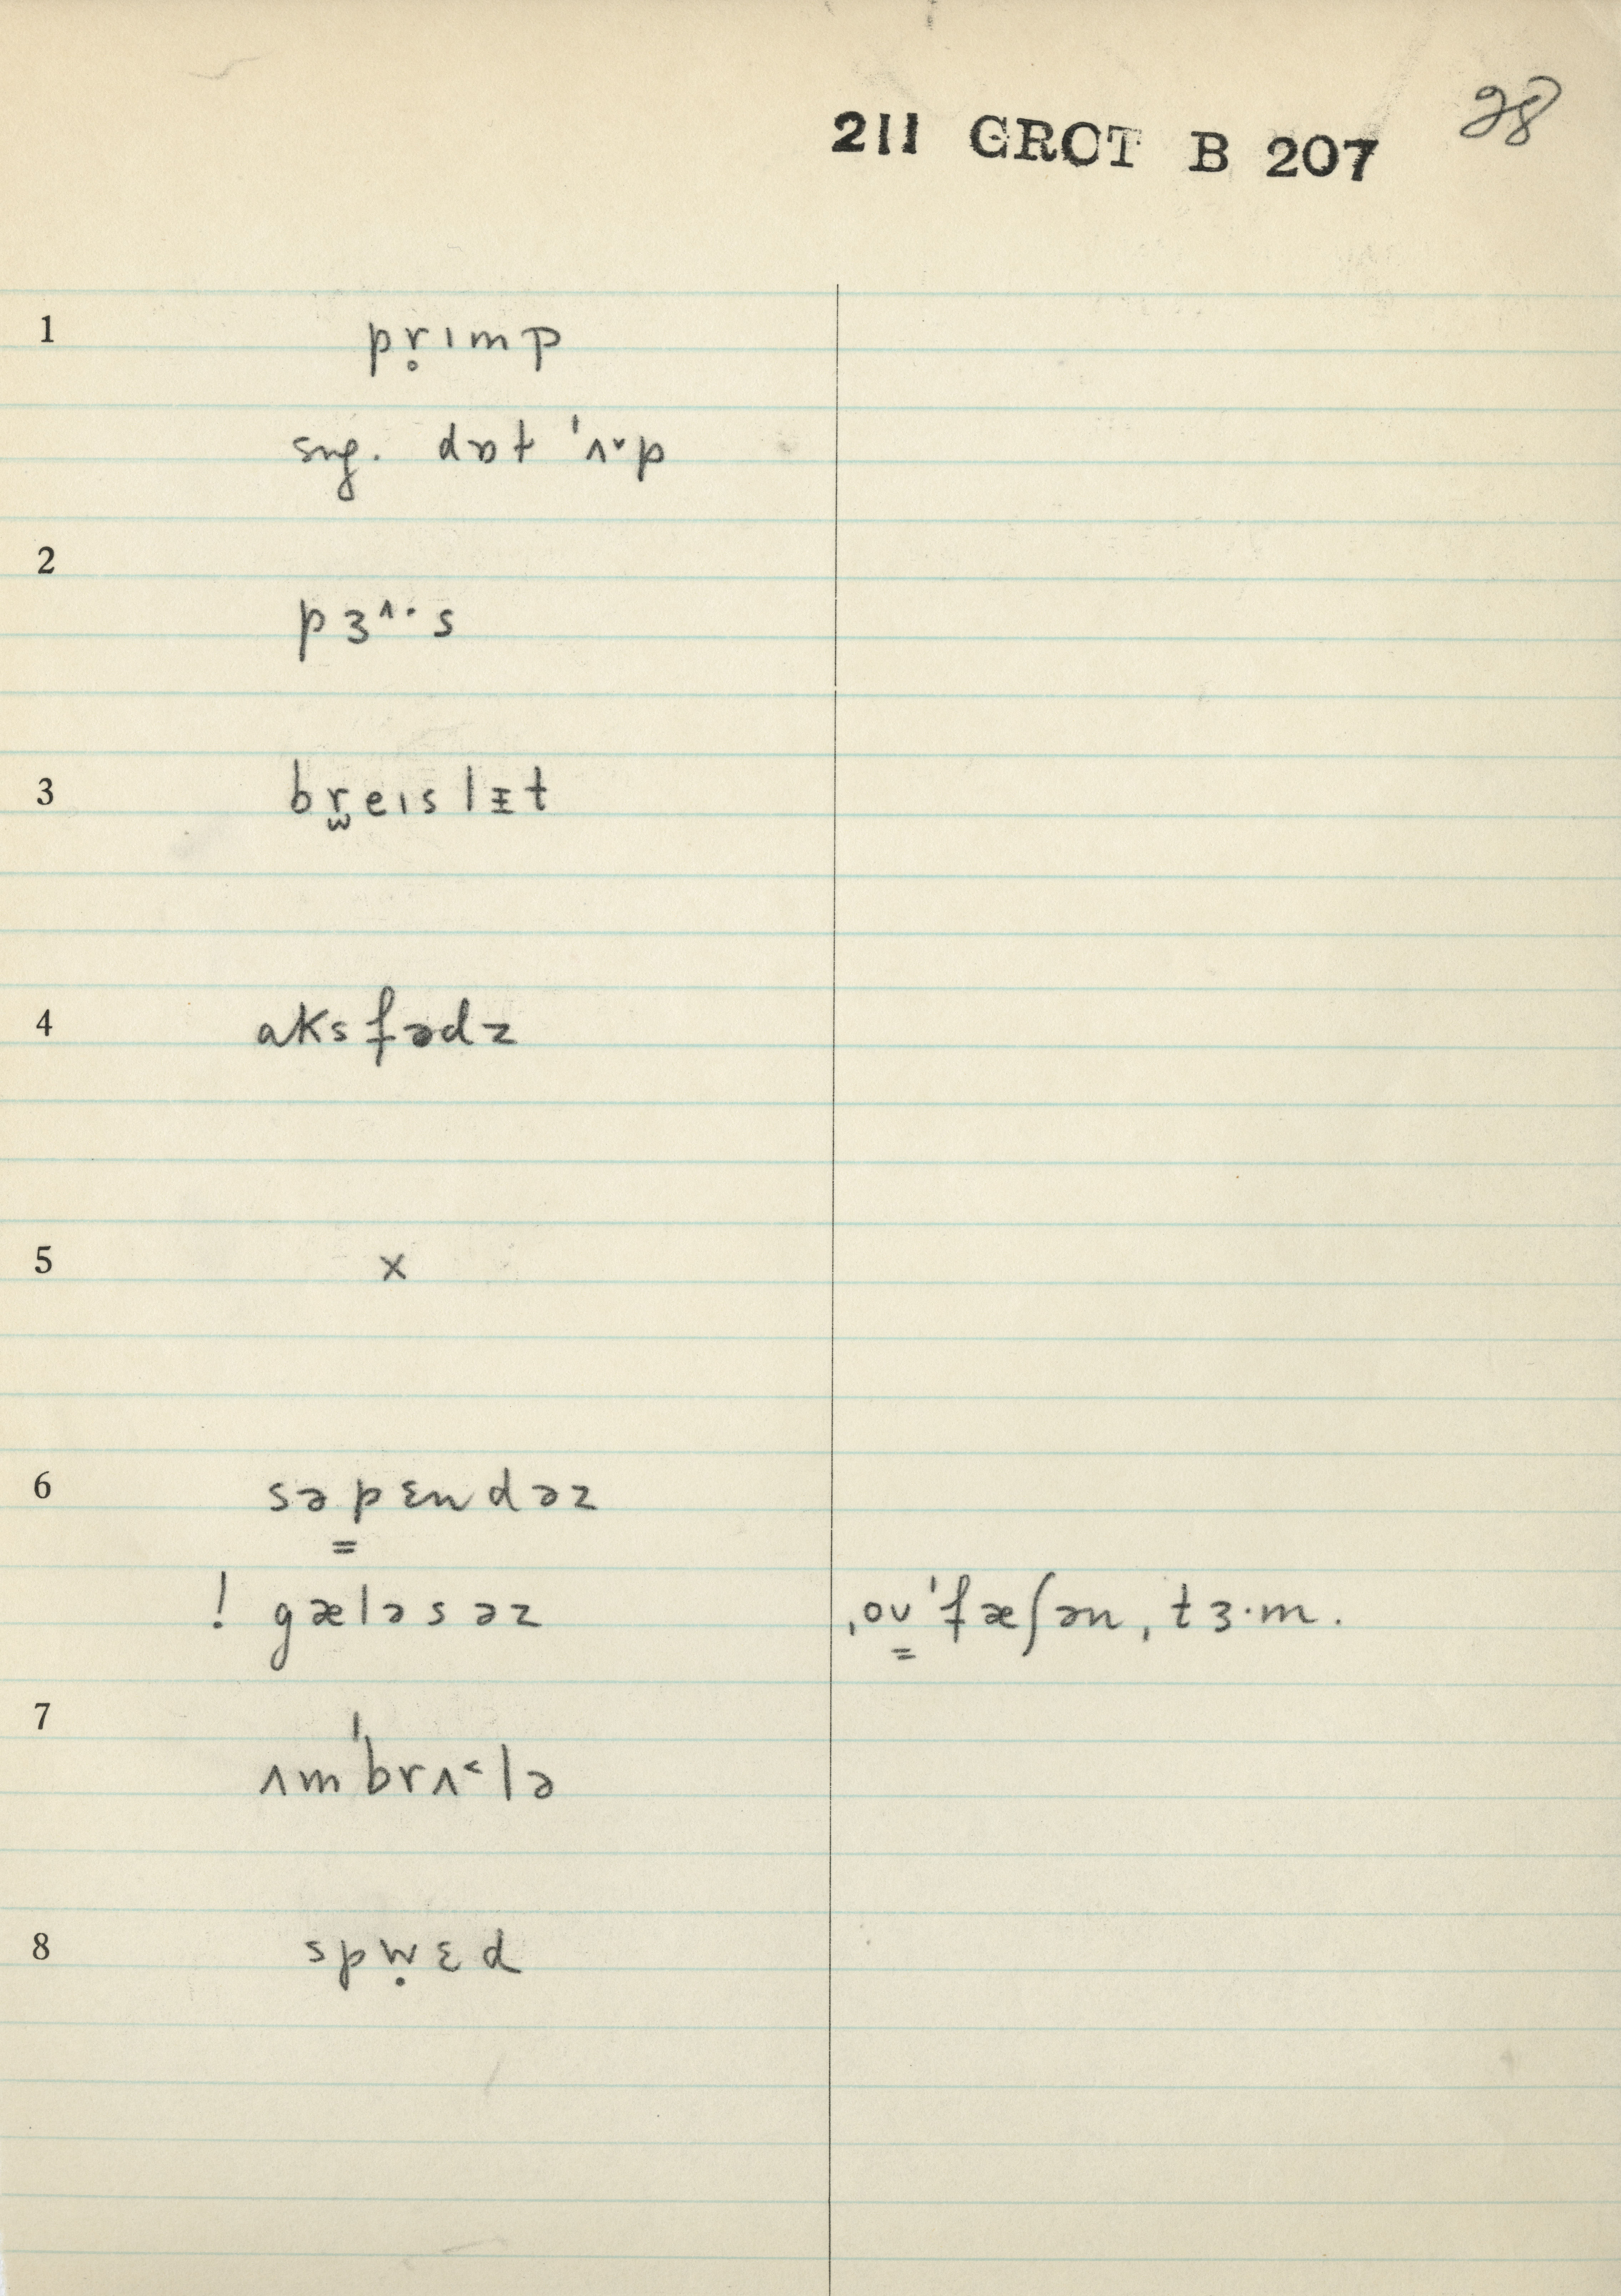 28
211 GROT B 207
1 pr̥ɪmp
sug. dɒt ˈʌ˅p
2
pɜ˄·s
3 br̫eɪslɪ̵t
4 aksfədz
5 x
6 səpɛndəz
! gæləsəz ˌoʊ̳ˈfæʃənˌtɜ·m.
7
ʌmˈbrʌ˂lə
8 spẉɛd